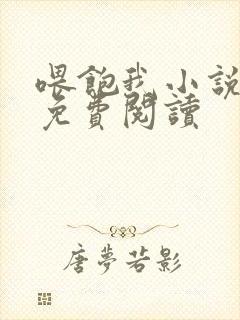 喂飽我小說
免費閱讀
唐夢若影